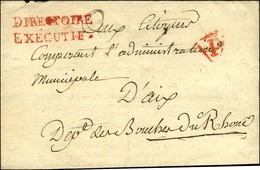 DIRECTOIRE
EXECUTIF.
aux Citoyens
Composant l'administration
municipale
D'aix
Dept. des Bouches du Rhône